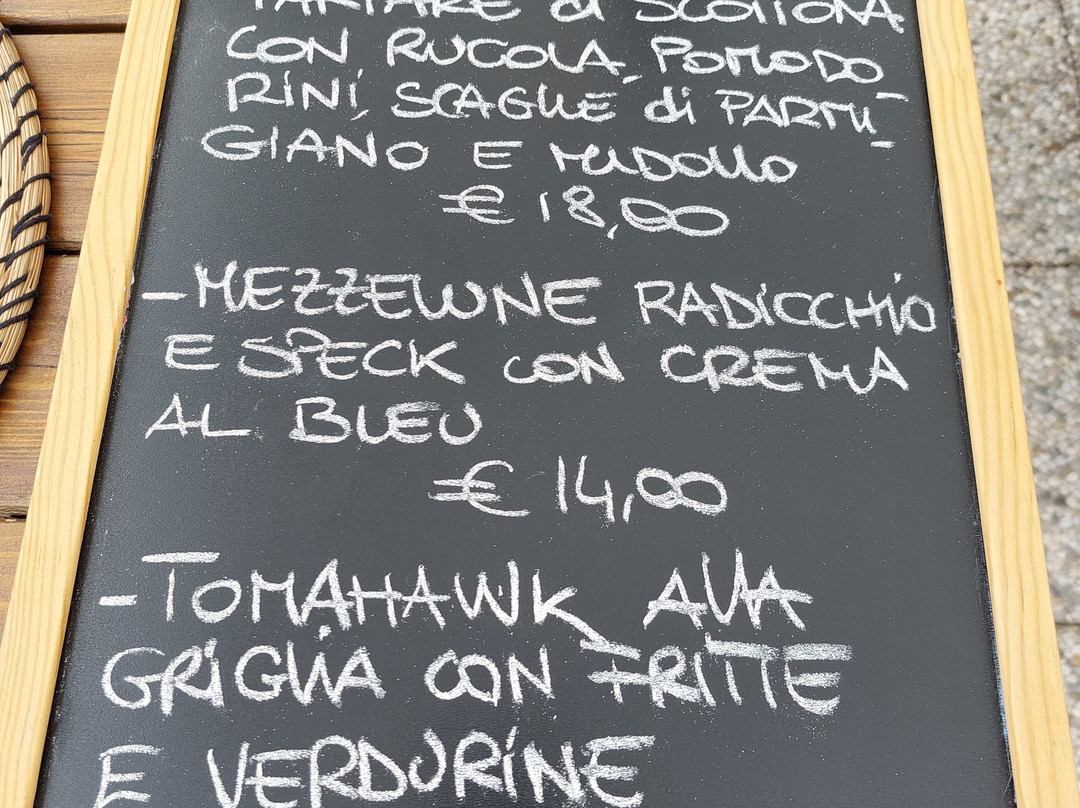 TARTARE di SCOTTONA
CON RUCOLA, POMODO-
RINI, SCAGLIE di PARMI-
GIANO E MIDOLLO
€ 18,00
- MEZZELUNE RADICCHIO
E SPECK CON CREMA
AL BLEU
€ 14,00
- TOMAHAWK ALLA
GRIGLIA CON FRITTE
E VERDURINE